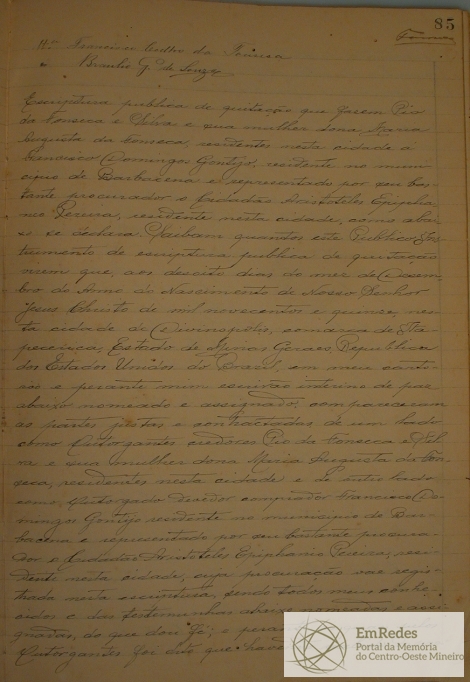 85
Francisco Coelho da Fonseca
Braulio G. de Souza
Escriptura publica de quitação que fasem Pio
da Fonseca e Silva e sua mulher dona Maria
Augusta da Fonseca, residentes nesta cidade a
Francisco Domingos Gontijo, residente no muni-
cipio de Barbacena e representado por seu bas-
tante procurador o Cidadão Aristoteles Epipha-
nio Pereira, residente nesta cidade, como abai-
xo se declara. Saibam quantos este Publico Ins-
trumento de escriptura publica de quitação
virem que, aos desoito dias do mez de Dezem-
bro do Anno do Nascimento de Nosso Senhor
Jesus Christo de mil novecentos e quinze, nes-
ta cidade de Divinopolis, comarca de Ita-
pecerica, Estado de Minas Geraes, Republica
dos Estados Unidos do Brasil, em meu carto-
rio e perante mim escrivão interino de paz
abaixo nomeado e assignado, compareceram
as partes justas e contractadas de um lado
como Outorgantes credores Pio da Fonseca e Sil-
va e sua mulher dona Maria Augusta da Fon-
seca, residentes nesta cidade e de outro lado
como Outorgado devedor comprador Francisco Do-
mingos Gontijo residente no municipio de Bar-
bacena e representado por seu bastante procura-
dor o Cidadão Aristoteles Epiphanio Pereira, resi-
dente nesta cidade, cuja procuração vae regis-
trada nesta escriptura, sendo todos meus conhe-
cidos e das testemunhas abaixo nomeadas e assi-
gnadas, do que dou fé; e
Outorgantes foi dito que
EmRedes
Portal da Memória
do Centro-Oeste Mineiro